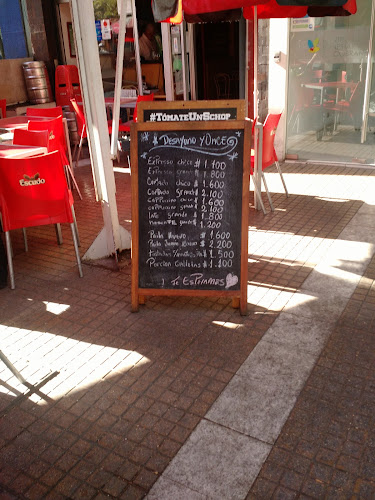 #TómateUnSchop
# Desayuno y Once
Expresso chico # 1.100
Expresso grande # 1.800
Cortado chico # 1.600
Cortado grande # 2.100
capuccino chico # 1.600
capuccino grande # 2.100
late grande # 1.800
# 1.200
Paila Huevo # 1.600
Paila Jamon $ 2.200
$ 1.500
Porcion # 1.200
Te Esperamos
Escudo